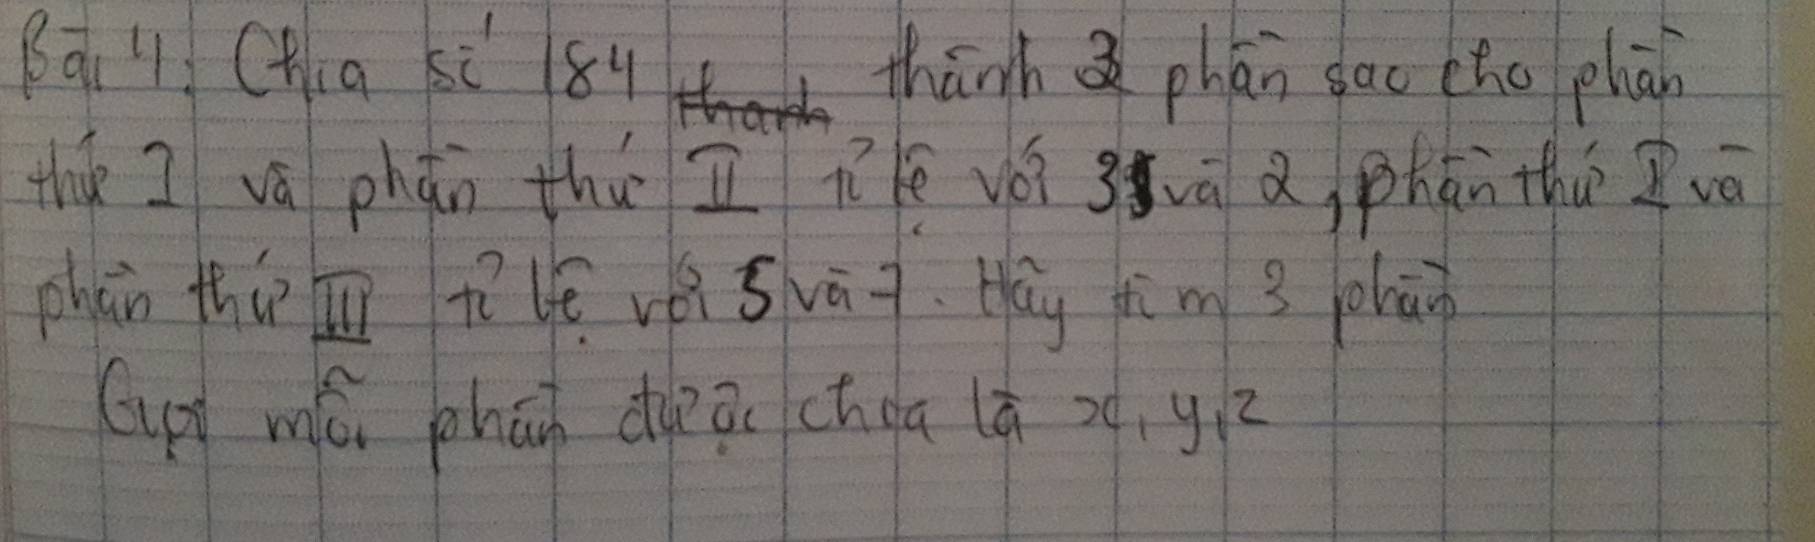 Bài 4: Chia số 184 thành 3 phần sao cho phần
thứ I và phần thứ II tỉ lệ với 3 và 2, phần thứ I và
phần thứ III tỉ lệ với 5 và 7. Hãy tìm 3 phần
Gọi mỗi phần được chia là x, y, z